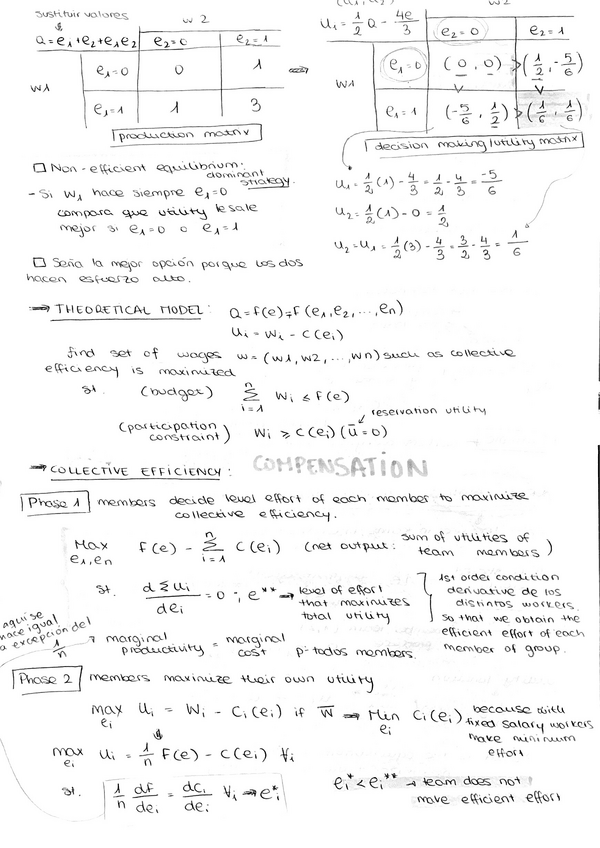 sustituir valores
w 2
Q = e1 + e2 + e1e2
e2=0
e2=1
w1
e1=0
0
1
e1=1
1
3
production matrix
(u1, u2)
U1 = 1/2 Q - 4e/3
w2
e2=0
e2=1
w1
e1=0
(0, 0) > (1/2, -5/6)
e1=1
(-5/6, 1/2) > (1/6, 1/6)
decision making/utility matrix
□ Non-efficient equilibrium:
dominant strategy
- Si w1 hace siempre e1=0
compara que utility le sale
mejor si e1=0 o e1=1
□ Seria la mejor opción porque los dos
hacen esfuerzo alto.
U1 = 1/2 (1) - 4/3 = 1/2 - 4/3 = -5/6
U2 = 1/2 (1) - 0 = 1/2
U2 = U1 = 1/2 (3) - 4/3 = 3/2 - 4/3 = 1/6
⇒ THEORETICAL MODEL: Q = f(e) = F(e1, e2, ..., en)
Ui = wi - c(ei)
find set of wages w = (w1, w2, ..., wn) such as collective
efficiency is maximized
st. (budget) n Σ i=1 wi ≤ f(e)
reservation utility
(participation constraint) wi ≥ c(ei) (ū=0)
⇒ COLLECTIVE EFFICIENCY: COMPENSATION
Phase 1 members decide level effort of each member to maximize
collective efficiency.
Max e1,en f(e) - n Σ i=1 c(ei) (net output: sum of utilities of team members)
st. dΣui/dei = 0 ; e** → level of effort
that maximizes
total utility
1st order condition
derivative de los
distintos workers.
so that we obtain the
efficient effort of each
member of group.
aqui se
hace igual
a excepción del
1/n
marginal productivity = marginal cost p. todos members.
Phase 2 members maximize their own utility
max ei ui = wi - ci(ei) if w̄ ⇒ Min ei ci(ei)
because with
fixed salary workers
make minimum
effort.
max ei ui = 1/n F(e) - c(ei) ∀i
st. 1/n df/dei = dci/dei ∀i ⇒ ei*
ei* < ei** → team does not
make efficient effort